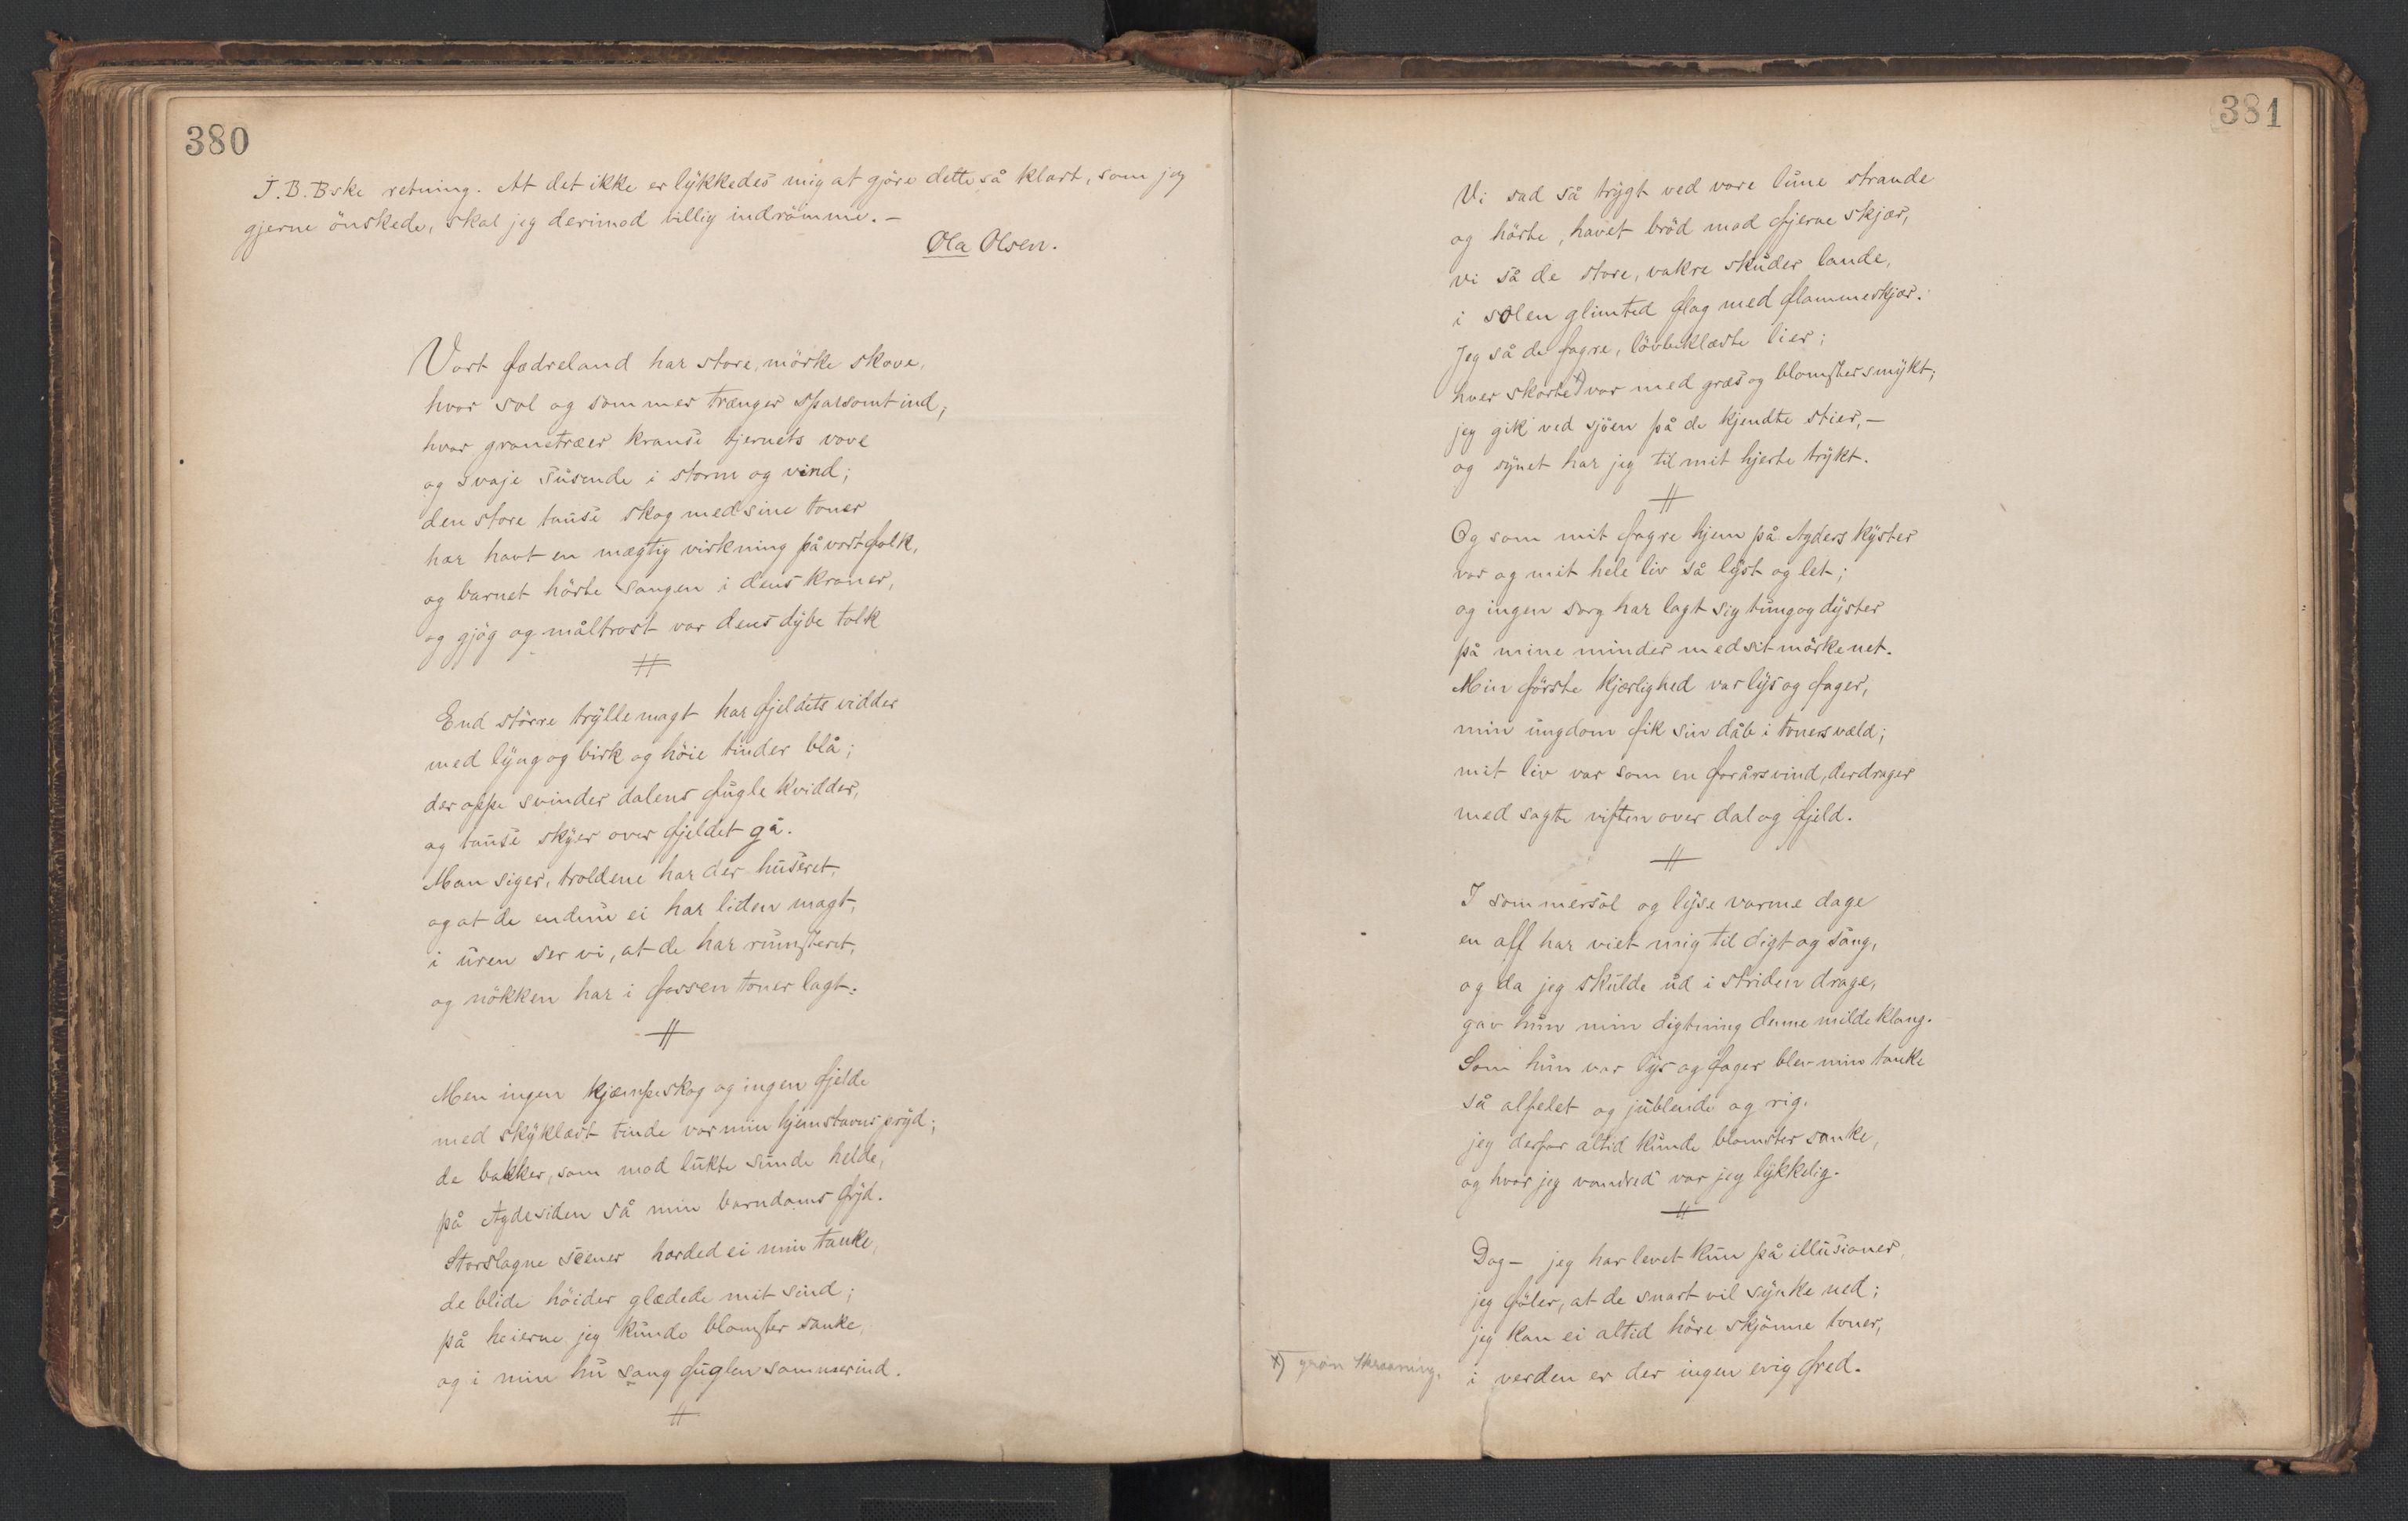 380
J. B. Bske retning. At det ikke er lykkedes mig at gjöre dette så klart, som jeg
gjerne önskede, skal jeg derimod villig indrömme. —
Ola Olsen.
Vort fædreland har store, mörke skove,
hvor sol og sommer trænger sparsomt ind,
hvor granetræer kranse tjernets vove
og svaje susende i storm og vind;
den store tause skog med sine toner
har havt en mægtig virkning på vort folk,
og barnet hörte sangen i dens kroner,
og gjög og måltrost var dens dybe tolk
#
End större tryllemagt har fjeldets vidder
med lyng og birk og höie tinder blå;
der oppe svinder dalens fugle kvidder,
og tause skyer over fjeldet gå.
Man siger, troldene har der huseret,
og at de endnu ei har liden magt,
i uren ser vi, at de har rumsteret,
og nökken har i fossen toner lagt.
#
Men ingen kjæmpeskog og ingen fjelde
med skyklædt tinde var min hjemstavns pryd;
de bakker, som mod lukte sunde helde,
på Agdesiden så min barndoms fryd.
Storslagne scener hærded ei min tanke,
de blide höider glædede mit sind;
på heierne jeg kunde blomster sanke,
og i min hu sang fuglen sommer ind.
#
381
Vi sad så trygt ved vore lune strande
og hörte, havet bröd mod fjerne skjær,
vi så de store, vakre skuder lande,
i solen glimted flag med flammeskjær.
Jeg så de fagre, lövbeklædte lier;
hver skorte x) var med græs og blomster smykt;
jeg gik ved sjöen på de kjendte stier, —
og synet har jeg til mit hjerte trykt.
#
Og som mit fagre hjem på Agders kyster
var og mit hele liv så lyst og let;
og ingen sorg har lagt sig tung og dyster
på mine minder med sit mörke net.
Min förste kjærlighed var lys og fager,
min ungdom fik sin dåb i toners væld;
mit liv var som en forårsvind, der drager
med sagte viften over dal og fjeld.
#
I sommersol og lyse varme dage
en alf har viet mig til digt og sang,
og da jeg skulde ud i striden drage,
gav hun min digtning denne milde klang.
Som hun var lys og fager blev min tanke
så alfelet og jublende og rig.
jeg derfor altid kunde blomster sanke,
og hvor jeg vandred var jeg lykkelig.
#
Dog — jeg har levet kun på illusioner,
jeg föler, at de snart vil synke ned;
jeg kan ei altid höre skjönne toner,
i verden er der ingen evig fred.
x) grön skraaning.